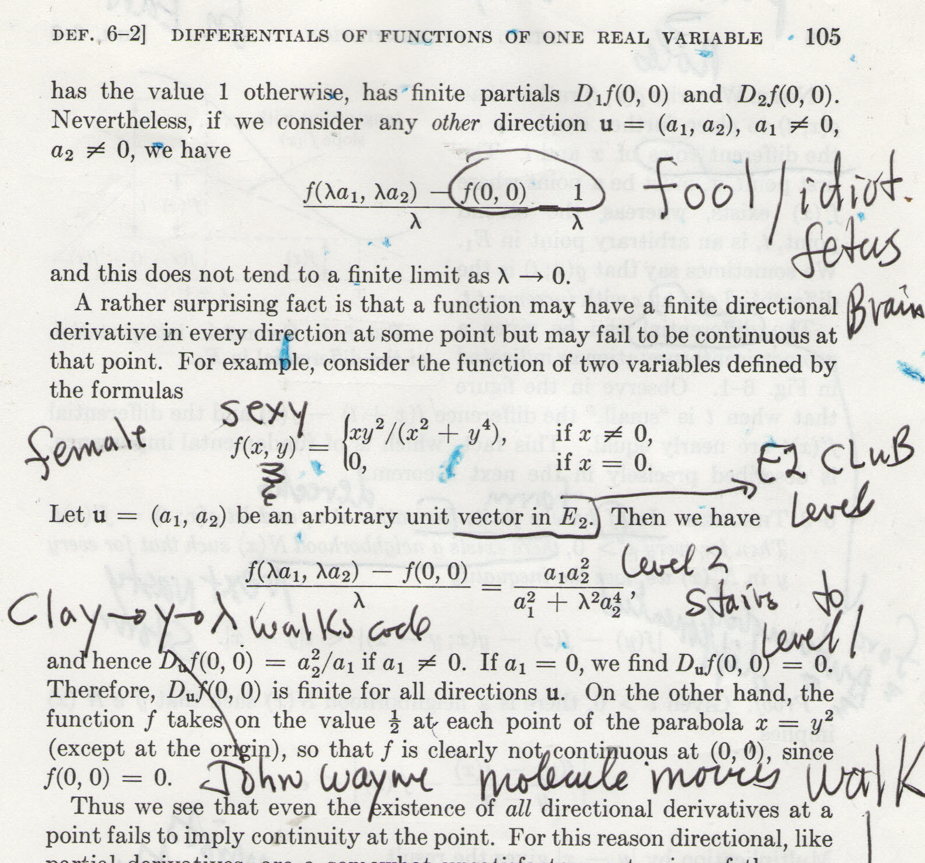 DEF. 6–2] DIFFERENTIALS OF FUNCTIONS OF ONE REAL VARIABLE 105
has the value 1 otherwise, has finite partials D₁f(0, 0) and D₂f(0, 0).
Nevertheless, if we consider any other direction u = (a₁, a₂), a₁ ≠ 0,
a₂ ≠ 0, we have
f(λa₁, λa₂) − f(0, 0) 1
λ λ
fool/idiot
fetus
and this does not tend to a finite limit as λ → 0.
A rather surprising fact is that a function may have a finite directional
Brain
derivative in every direction at some point but may fail to be continuous at
that point. For example, consider the function of two variables defined by
the formulas
sexy
female
f(x, y) = { xy²/(x² + y⁴), if x ≠ 0,
0, if x = 0.
E2 CLuB
Level
Let u = (a₁, a₂) be an arbitrary unit vector in E₂. Then we have
f(λa₁, λa₂) − f(0, 0) = a₁a₂²
λ a₁² + λ²a₂⁴,
Level 2
stairs to
Level 1
Clay → y → λ walks code
and hence Dᵤf(0, 0) = a₂²/a₁ if a₁ ≠ 0. If a₁ = 0, we find Dᵤf(0, 0) = 0.
Therefore, Dᵤf(0, 0) is finite for all directions u. On the other hand, the
function f takes on the value ½ at each point of the parabola x = y²
(except at the origin), so that f is clearly not continuous at (0, 0), since
f(0, 0) = 0.
John Wayne molecule movies walk
Thus we see that even the existence of all directional derivatives at a
point fails to imply continuity at the point. For this reason directional, like